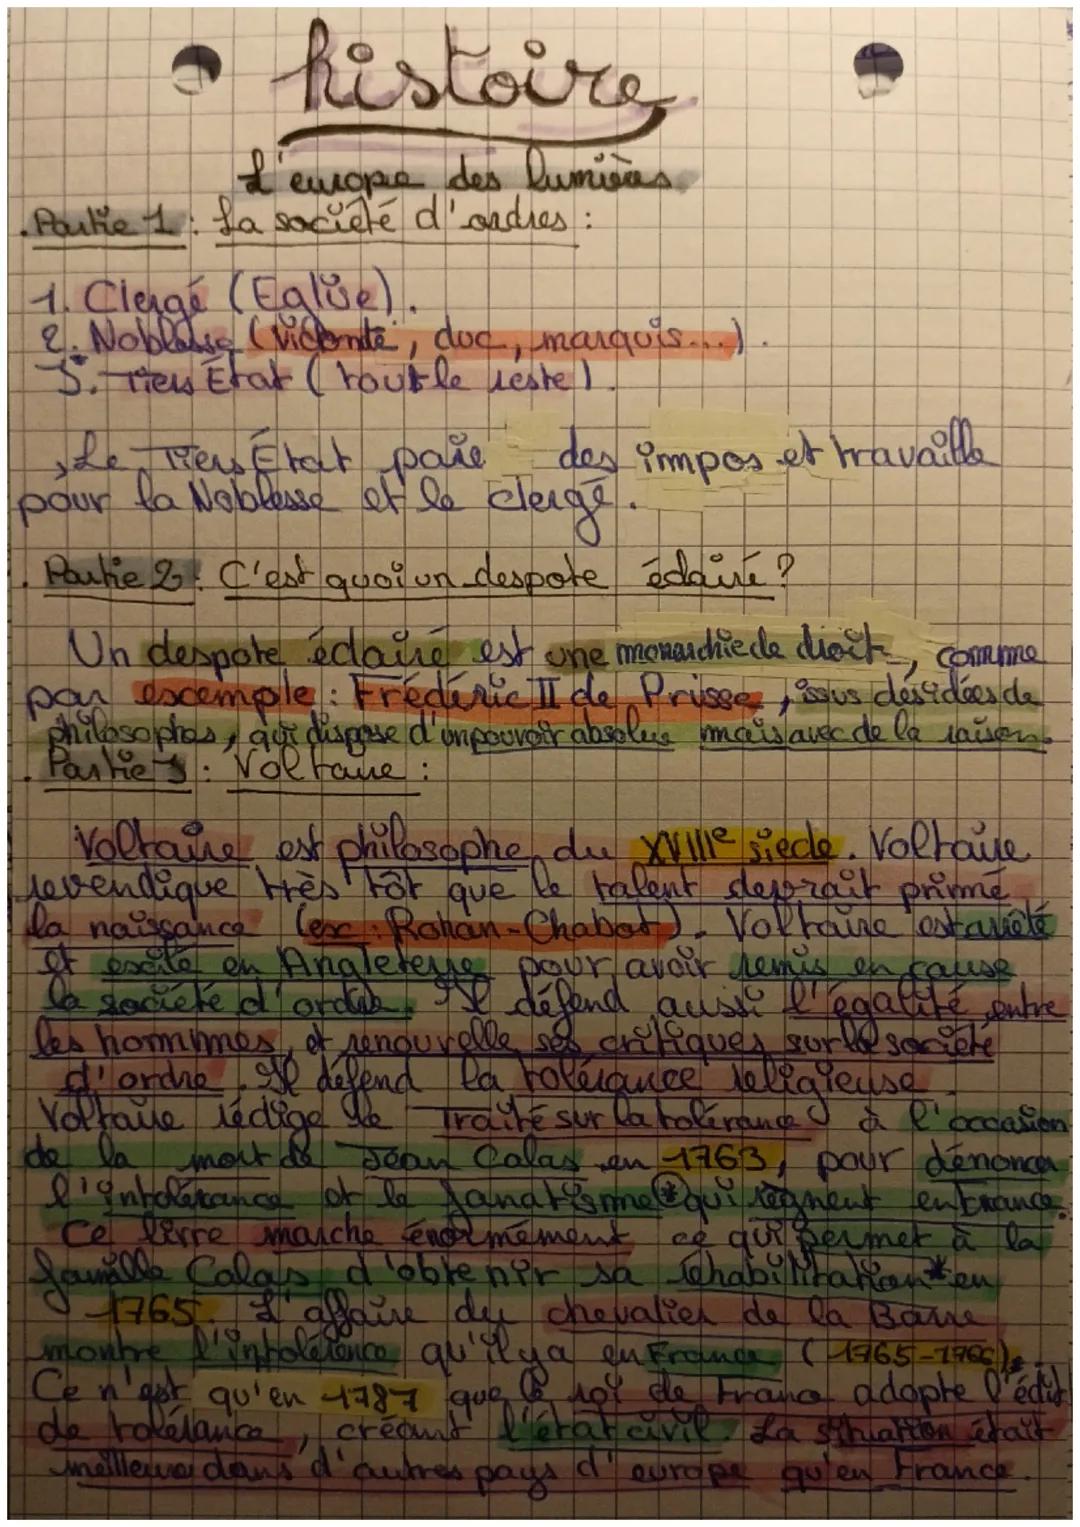 histoire
L'europe des lumières
. Partie 1 : La société d'ordres :
1. Clergé (Eglise).
2. Noblesse (Vicomte, duc, marquis...).
3. Tiers État (tout le reste).
Le Tiers État paie des impos et travaille
pour la Noblesse et le clergé.
. Partie 2 : C'est quoi un despote éclairé ?
Un despote éclairé est une monarchie de droit, comme
par excemple : Frédéric II de Prisse, issus des idées de
philosophes, qui dispose d'un pouvoir absolue mais avec de la raison.
. Partie 3 : Voltaire :
Voltaire est philosophe du XVIIIe siècle. Voltaire
revendique très tôt que le talent devrait primé
la naissance (ex : Rohan-Chabot). Voltaire est arrêté
et exilé en Angleterre pour avoir remis en cause
la société d'ordre. Il défend aussi l'égalité entre
les hommmes, et renouvelle ses critiques sur la société
d'ordre. Il défend la tolérance religieuse.
Voltaire rédige le Traité sur la tolérance à l'occasion
de la mort de Jean Calas en 1763, pour dénoncer
l'intolérance et le fanatisme* qui règnent en France.
Ce livre marche énormément ce qui permet à la
famille Calas d'obtenir sa réhabilitation* en
1765. L'affaire du chevalier de la Barre
montre l'intolérence qu'il y a en France (1765-1766).
Ce n'est qu'en 1787 que le roi de France adopte l'édit
de tolérance, créant l'état civil. La situation était
meilleure dans d'autres pays d'europe qu'en France.